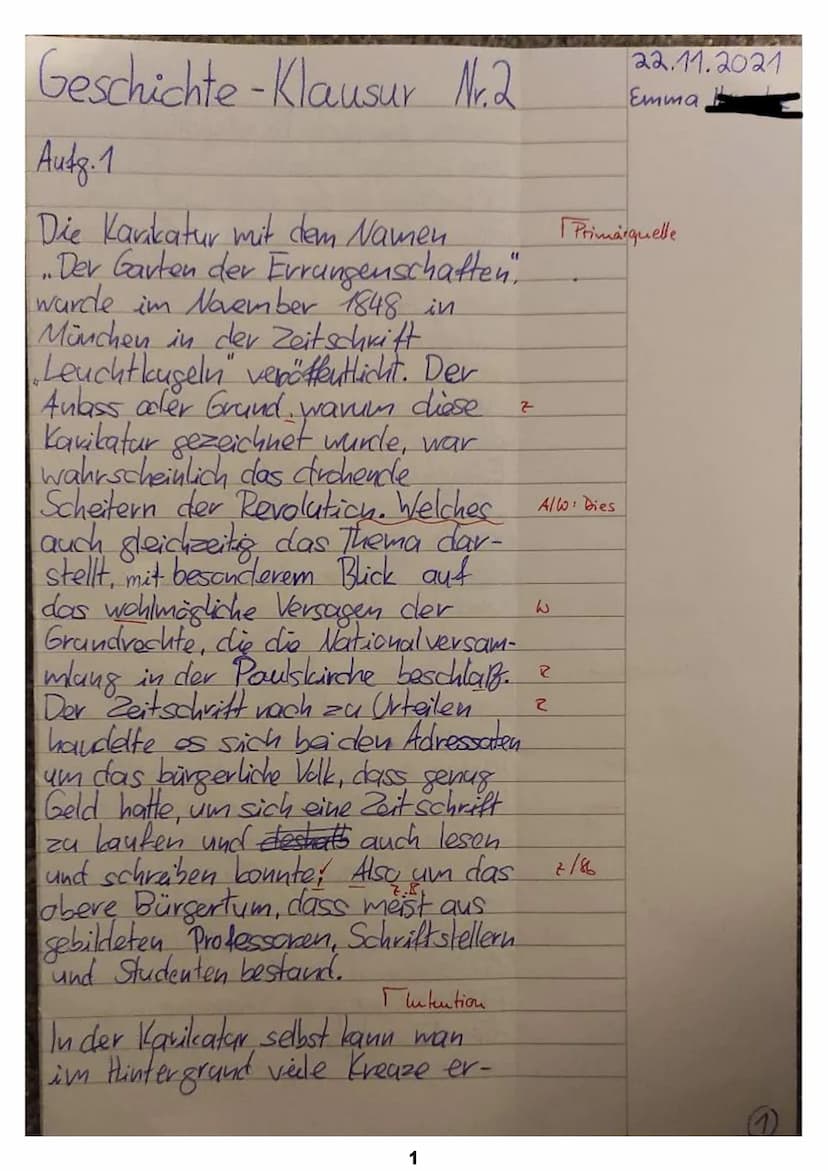 Geschichte-Klausur Nr.2
22.11.2021
Emma
Aufg.1
Die Karikatur mit dem Namen
Primärquelle
„Der Garten der Errungenschaften“,
wurde im November 1848 in
München in der Zeitschrift
„Leuchtkugeln“ veröffentlicht. Der
Anlass oder Grund, warum diese
z
Karikatur gezeichnet wurde, war
wahrscheinlich das drohende
Scheitern der Revolution. Welches
A/W: Dies
auch gleichzeitig das Thema dar-
stellt, mit besonderem Blick auf
das wohlmögliche Versagen der
W
Grundrechte, die die Nationalversam-
mlung in der Paulskirche beschlaß.
R
Der Zeitschrift nach zu Urteilen
R
handelte es sich bei den Adressaten
um das bürgerliche Volk, dass genug
Geld hatte, um sich eine Zeitschrift
zu kaufen und deshalb auch lesen
und schreiben konnte; Also um das
z/Sb
z.B
obere Bürgertum, dass meist aus
gebildeten Professoren, Schriftstellern
und Studenten bestand.
Intention
In der Karikatur selbst kann man
im Hintergrund viele Kreuze er-
1
1